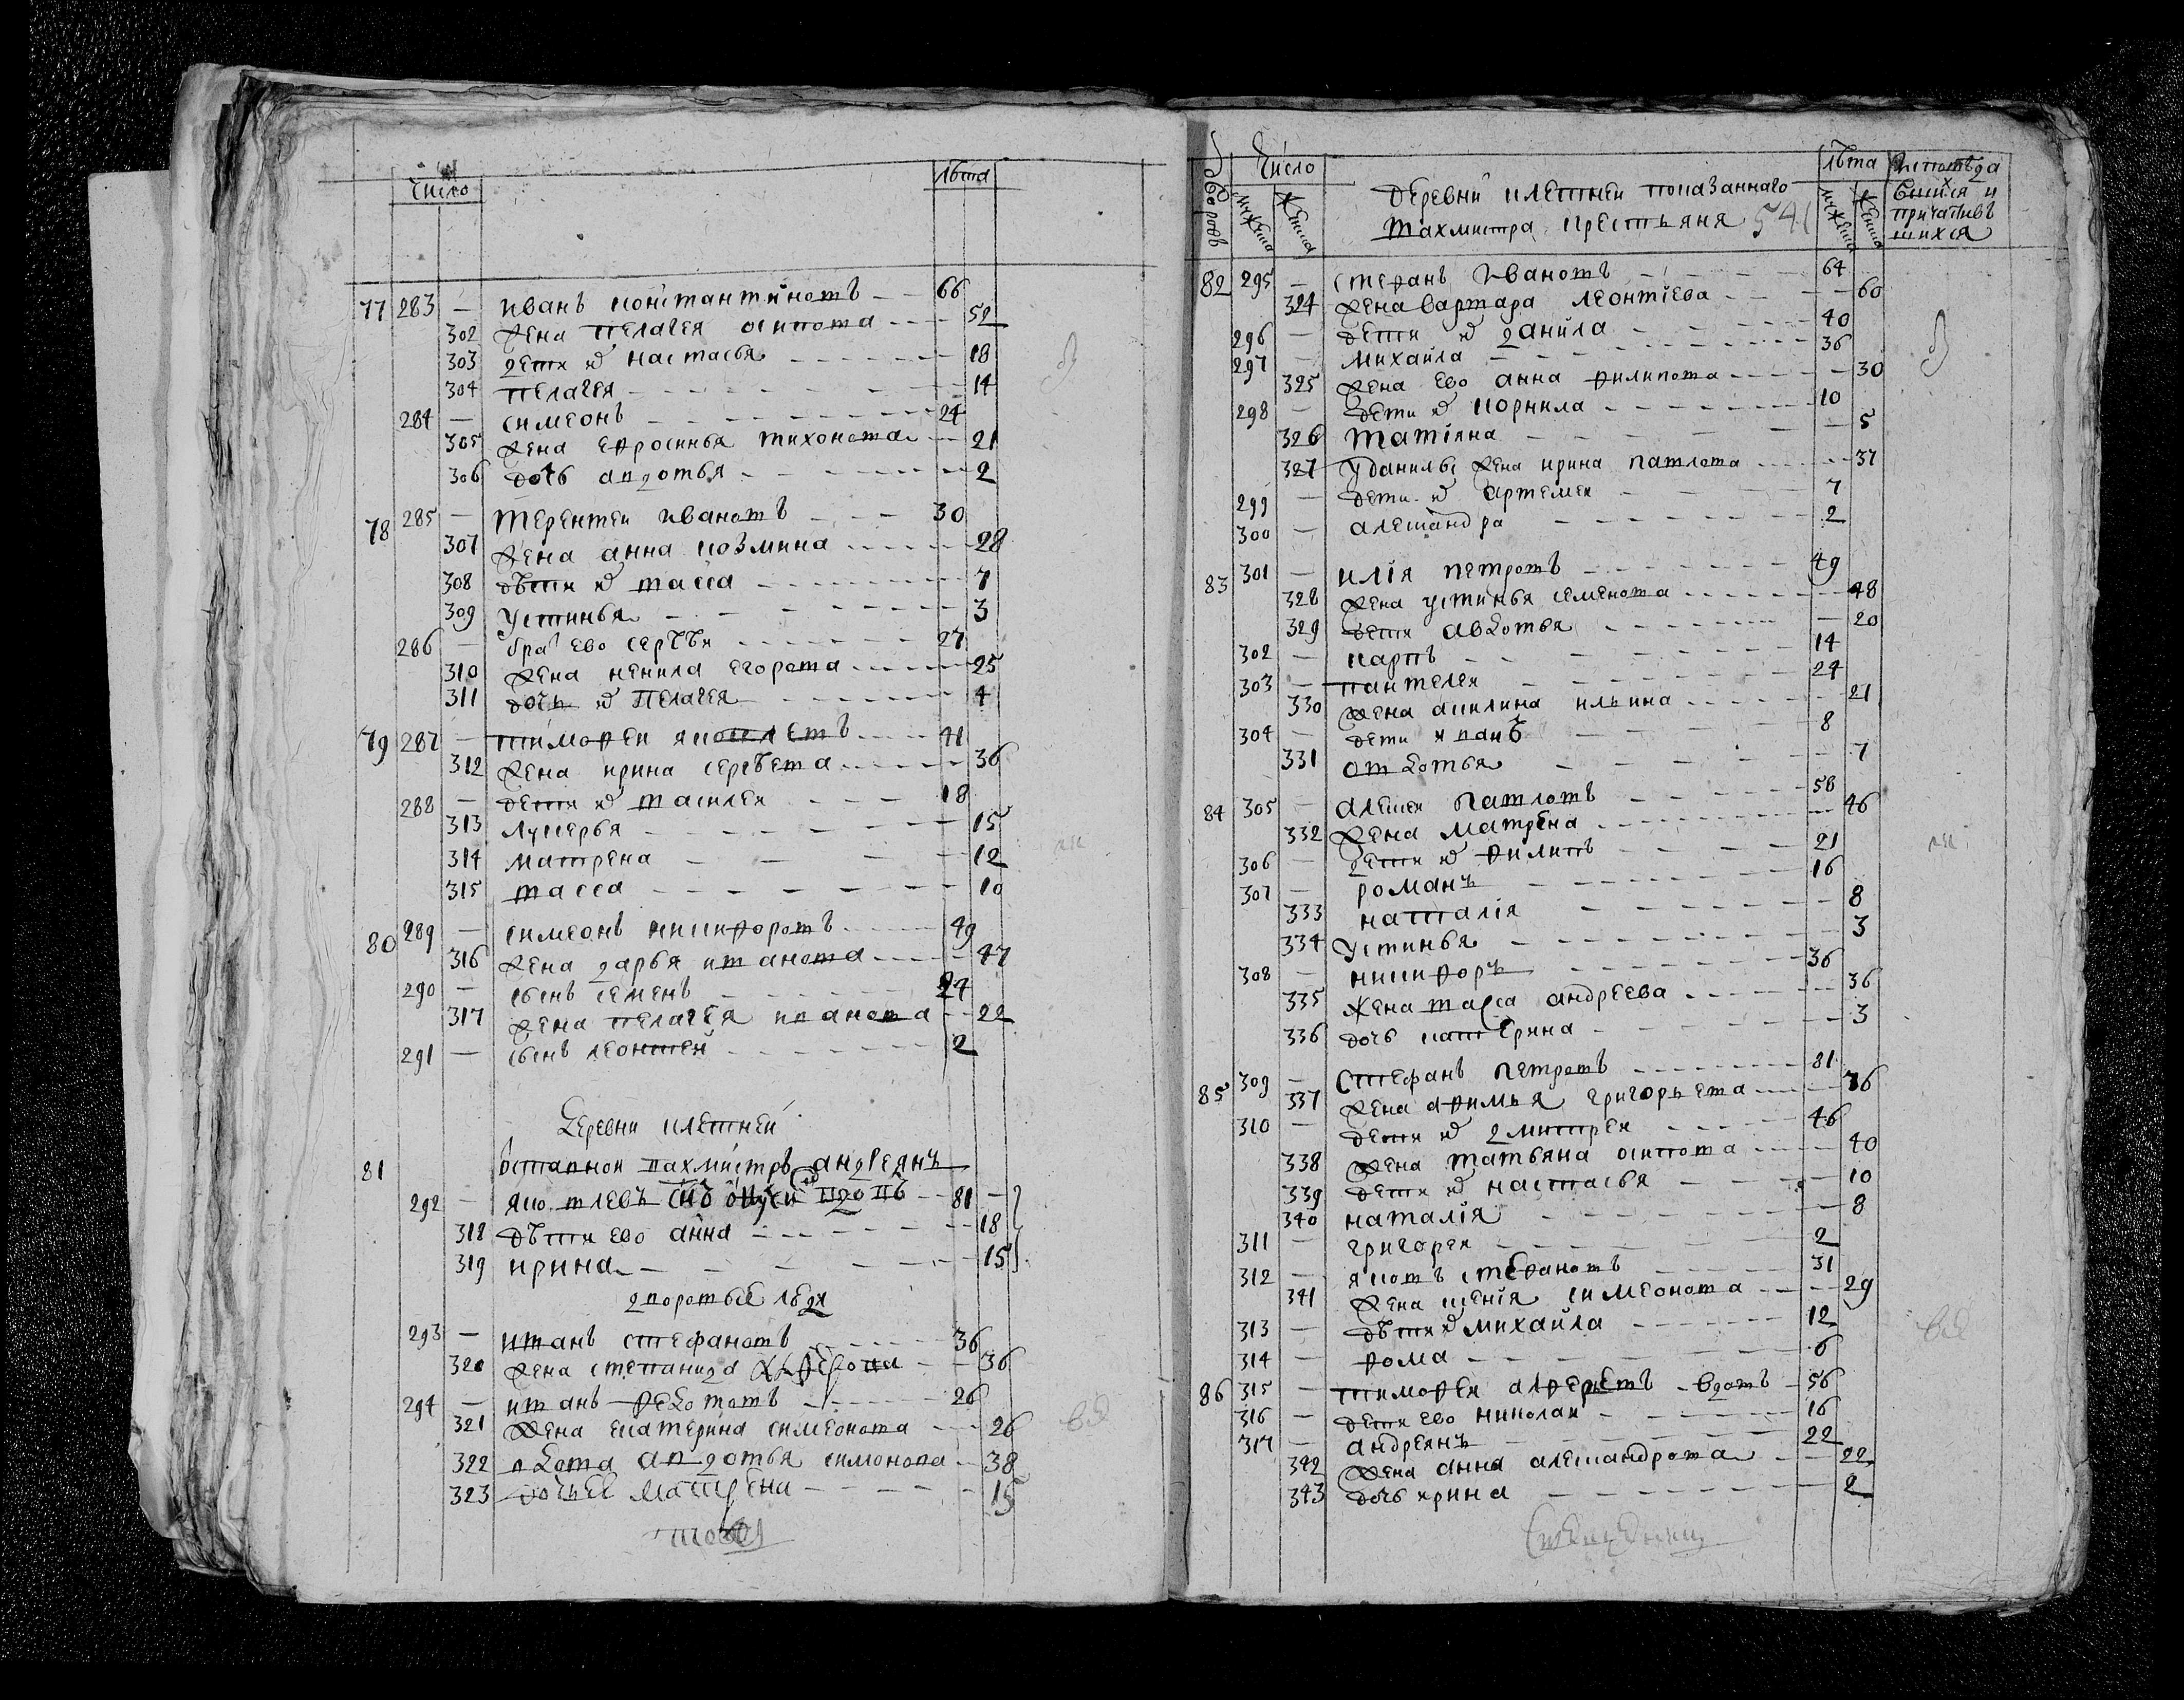 Число
лѣта
77 283 — иванъ константиновъ 66
302 жена пелагея осипова 52
303 дети их настасья 18
304 пелагея 14
284 — симеонъ 24
305 жена ефросинья тихонова 21
306 дочь авдотья 2
78 285 — терентеи ивановъ 30
307 жена анна козмина 28
308 дѣти их васса 7
309 устинья 3
286 — брат ево сергѣи 27
310 жена ненила егорова 25
311 дочь их пелагея 4
79 287 — тимофеи яковлевъ 41
312 жена ирина сергѣева 36
288 — дети их василеи 18
313 лукерья 15
314 матрена 12
315 васса 10
80 289 — симеонъ никифоровъ 49
316 жена дарья иванова 47
290 — сынъ семенъ 24
317 жена пелагея иванова 22
291 — сынъ леонтеи 2
Деревни клетнеи
81 вахмистръ андреянъ
292 — яковлевъ 81
318 дѣти ево анна 18
319 ирина 15
дворовые люди
293 — иванъ стефановъ 36
320 жена степанида 36
294 — иванъ федотовъ 26
321 жена екатерина симеонова 26
322 вдова авдотья симонова 38
323 дочь ее матрена 15
дворовъ
Число
мужеска
женска
деревни клетнеи показаннаго
вахмистра крестьяня 541
лѣта
мужеска
женска
исповеда
вшихся и
причастив
шихся
82 295 — стефанъ ивановъ 64
324 жена варвара леонтіева 60
296 — дети их данила 40
297 — михаила 36
325 жена ево анна филипова 30
298 — дети их корнила 10
326 татіяна 5
327 у данилы жена ирина павлова 37
299 — дети их артемеи 7
300 — александра 2
83 301 — илія петровъ 49
328 жена устинья семенова 48
329 дети авдотья 20
302 — карпъ 14
303 — пантелеи 24
330 жена акилина ильина 21
304 — дети иванъ 8
331 овдотья 7
84 305 — алексеи павловъ 58
332 жена матрена 46
306 — дети их филипъ 21
307 — романъ 16
333 наталія 8
334 устинья 3
308 — никифоръ 36
335 жена васса андреева 36
336 дочь катерина 3
85 309 — стефанъ петровъ 81
337 жена афимья григорьева 76
310 — дети их дмитреи 46
338 жена татьяна осипова 40
339 дети их настасья 10
340 наталія 8
311 — григореи 2
312 — яковъ стефановъ 31
341 жена ксенія симеонова 29
313 — дѣти их михаила 12
314 — фома 6
86 315 — тимофеи алферьевъ вдовъ 56
316 — дети ево николаи 16
317 — андреянъ 22
342 жена анна александрова 22
343 дочь ирина 2